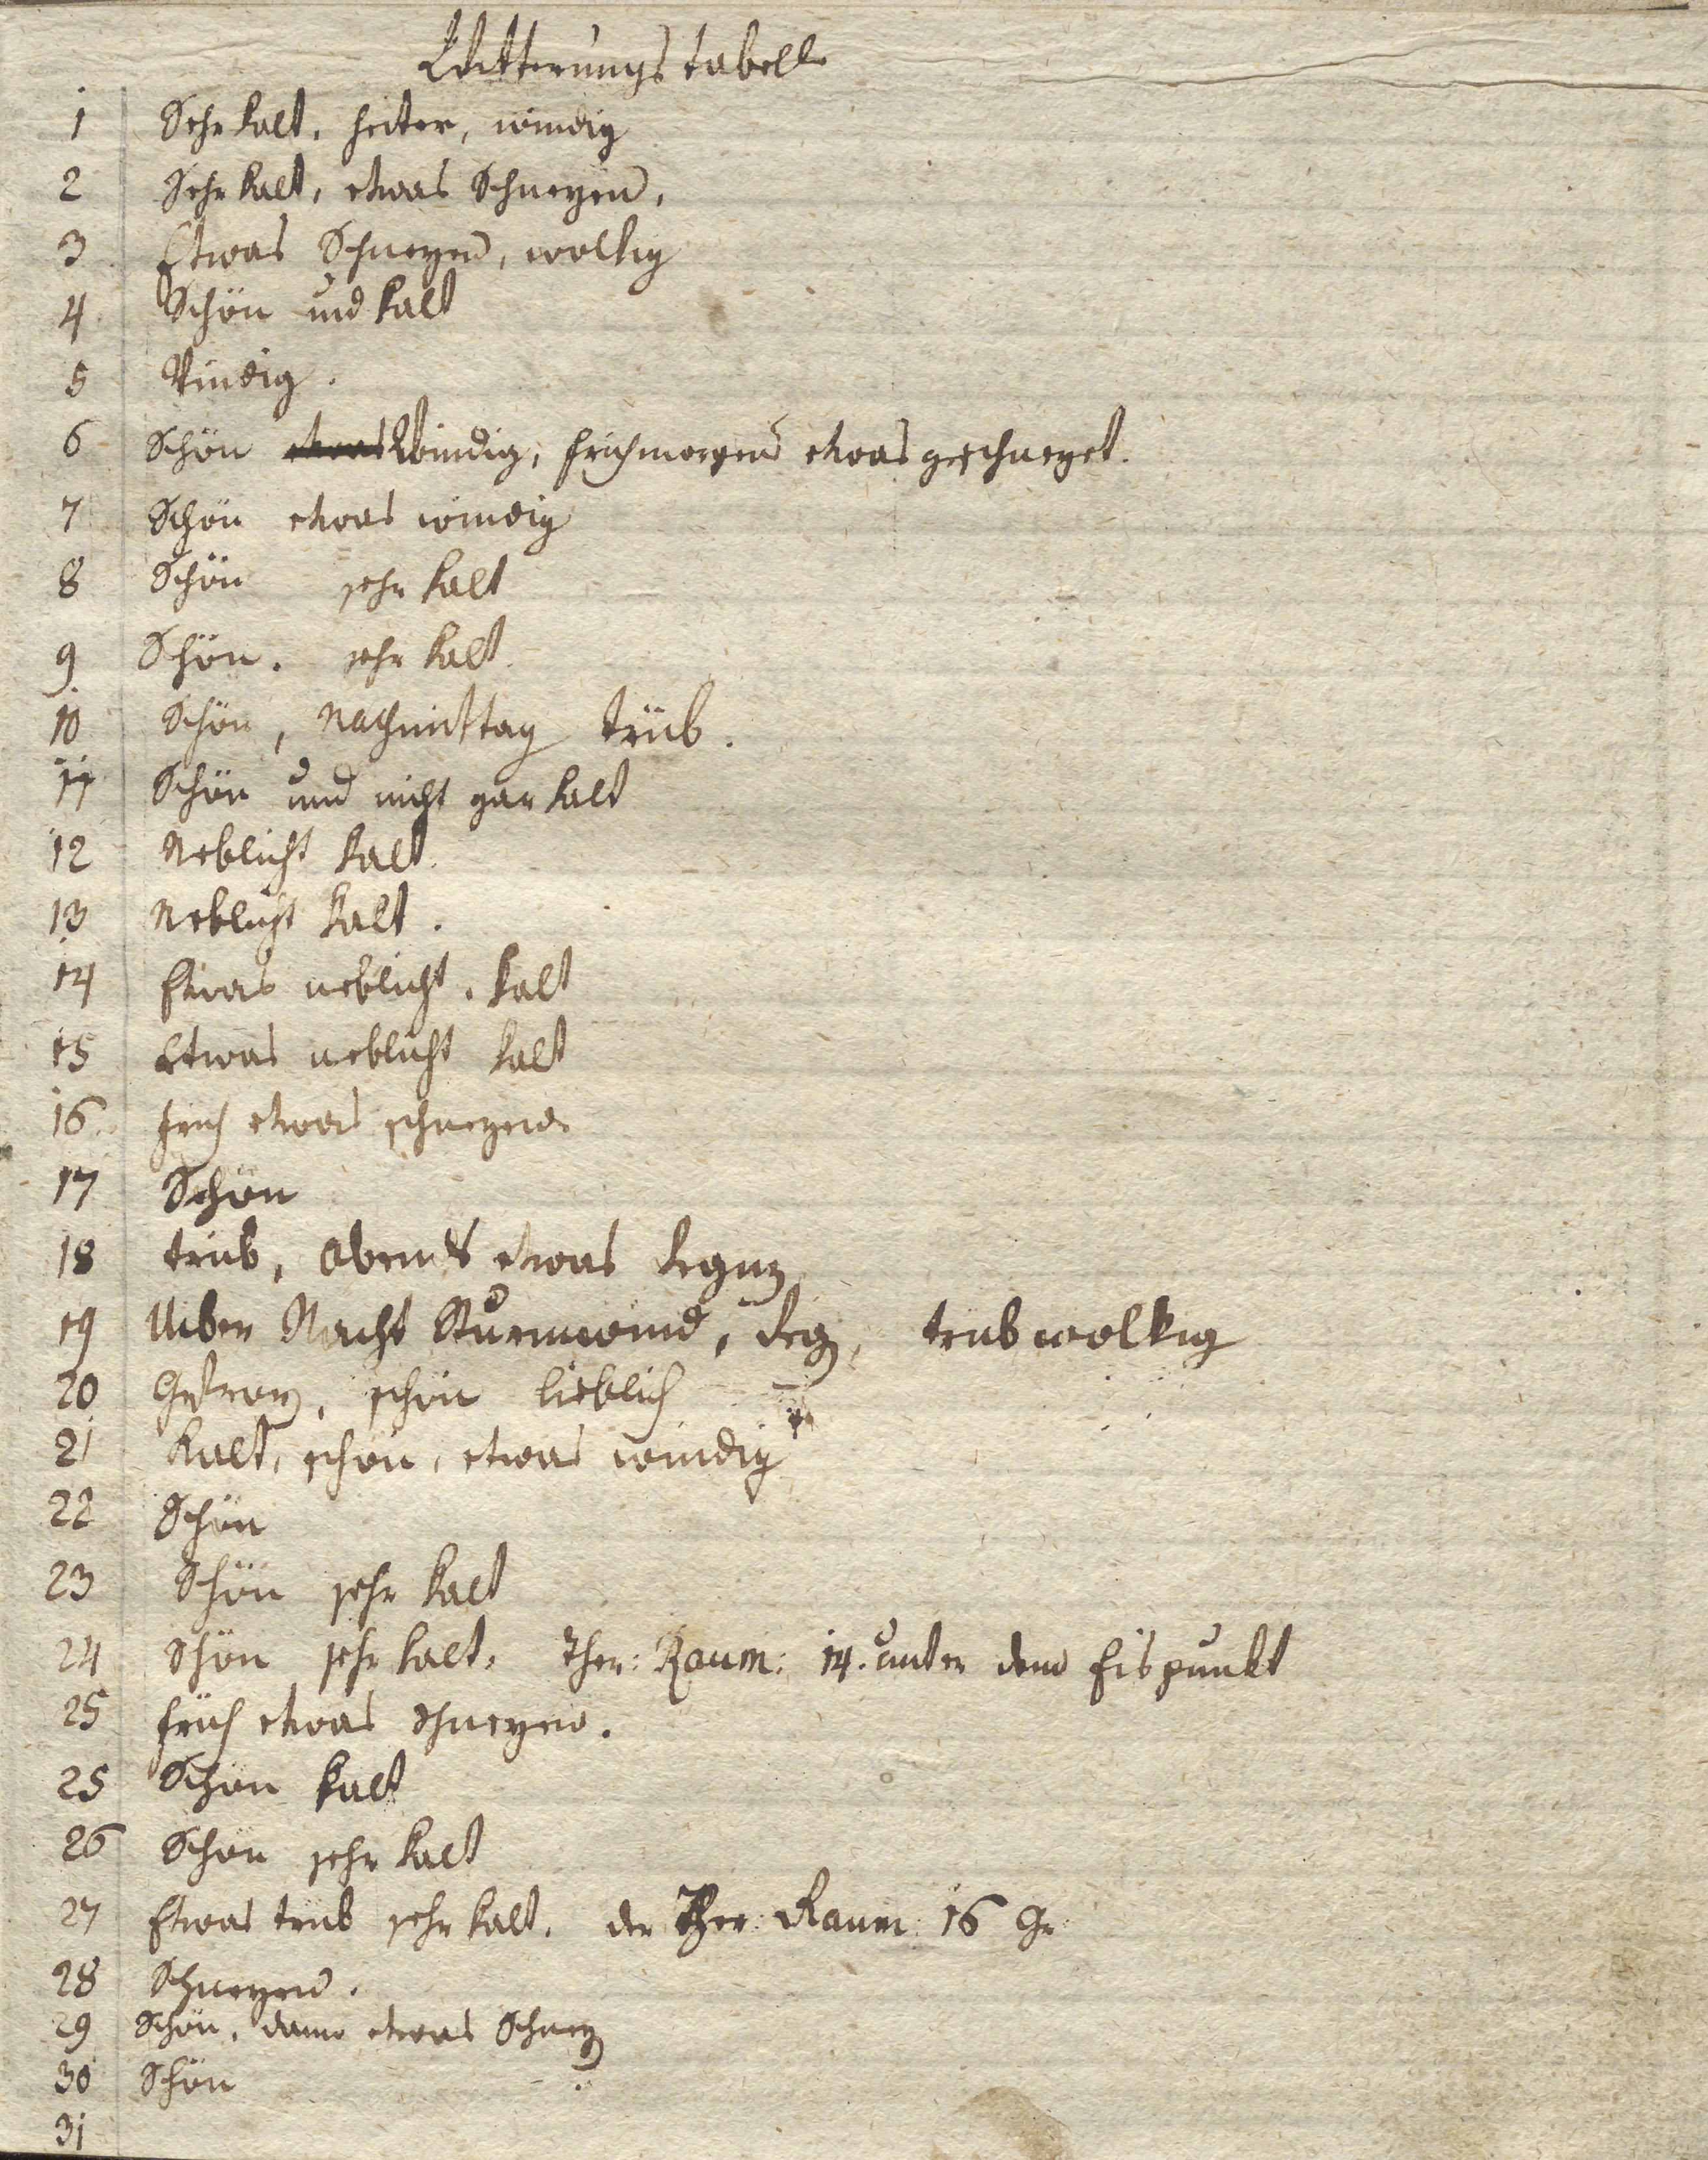 Witterungstabell
1 Sehr kalt, heiter, windig
2 Sehr kalt, etwas Schneyend,
3 Etwas Schneyend, wolkig
4 Schön und kalt
5 Windig.
6 Schön etwas Windig, frühmorgens etwas geschneyet.
7 Schön etwas windig
8 Schön sehr kalt
9 Schön. sehr kalt
10 Schön, Nachmittag trüb.
11 Schön und nicht gar kalt
12 Neblicht kalt.
13 Neblicht kalt.
14 Etwas neblicht, kalt
15 Etwas neblicht kalt
16 früh etwas schneyend
17 Schön
18 trüb, Abends etwas
19 Uiber Nacht Sturmwind, trüb wolkig
20 schön lieblich
21 Kalt, schön, etwas windig
22 Schön
23 Schön sehr kalt
24 Schön sehr kalt, Ther: Raum: 14. unter dem Eispunkt
25 früh etwas schneyend.
25 Schön kalt
26 Schön sehr kalt
27 Etwas trüb sehr kalt. der Ther: Raum: 16 Gr
28 Schneyend.
29 Schön, dann etwas
30 Schön
31